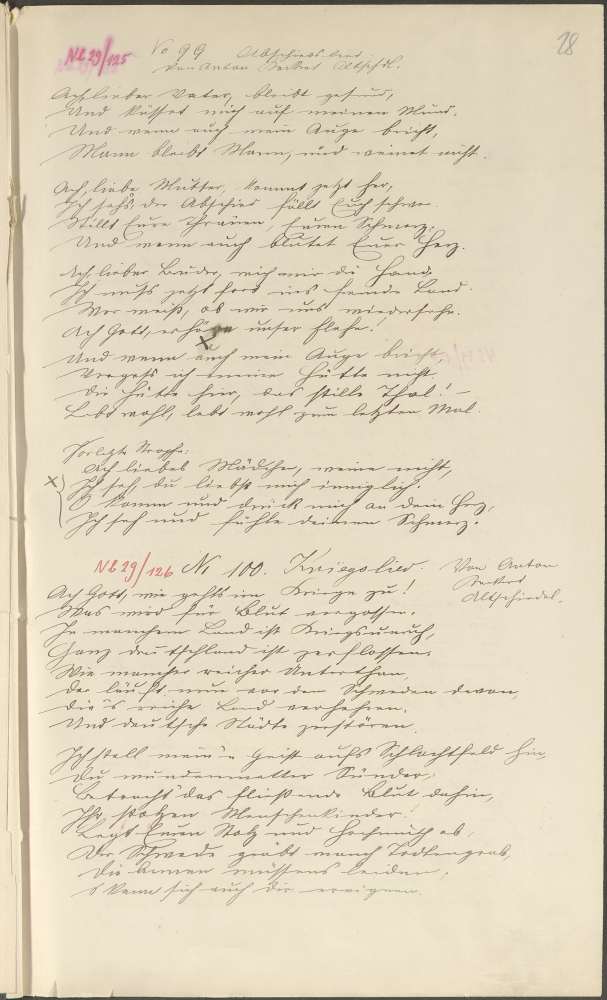 28
NL 29/125 No 99 Abschiedslied.
Von Anton Becker Altschdl.
Ach, lieber Vater, bleibt gesund,
Und küsset mich auf meinen Mund.
Und wenn auch mein Auge bricht,
Mann bleibt Mann, und weinet nicht.
Ach, liebe Mutter, kommt jetzt her,
Ich sehs, der Abschied fällt Euch schwer.
Stillt Eure Thränen, Euren Schmerz,
Und wenn auch blutet Euer Herz.
Ach, lieber Bruder, reich mir die Hand,
Ich muß jetzt fort ins fremde Land.
Wer weiß, ob wir uns wiedersehn.
Ach Gott, erhöre unser Flehn!
Und wenn auch mein Auge bricht,
Vergeß ich meine Hütte nicht,
Die Hütte hier, das stille Thal! –
Lebt wohl, lebt wohl zum letzten Mal.
Vorletzte Strophe:
Ach liebes Mädchen, weine nicht,
Ich seh, du liebst mich inniglich.
O komm und drück mich an dein Herz,
Ich seh und fühle deinen Schmerz.
NL 29/126 No 100. Kriegslied. Von Anton
Becker
Altschiedel.
Ach Gott, wie gehts im Kriege zu!
Was wird für Blut vergossen.
In manchem Land ist Kriegsunruh,
Ganz deutschland ist zerflossen.
Wie mancher reicher Unterthan,
Der läuft nun vor den Schweden davon,
Die's reiche Land verheeren.
Und deutsche Städte zerstören.
Ich stell mein'n Geist aufs Schlachtfeld hin,
Du wundenmatter Sünder,
Betracht das fließende Blut dahin,
Ihr stolzen Menschenkinder!
Legt Euren Stolz und Hochmuth ab,
Der Schwede gräbt manch Todtengrab,
Die Armen müssens leiden,
S kann sich auch dir ereignen.